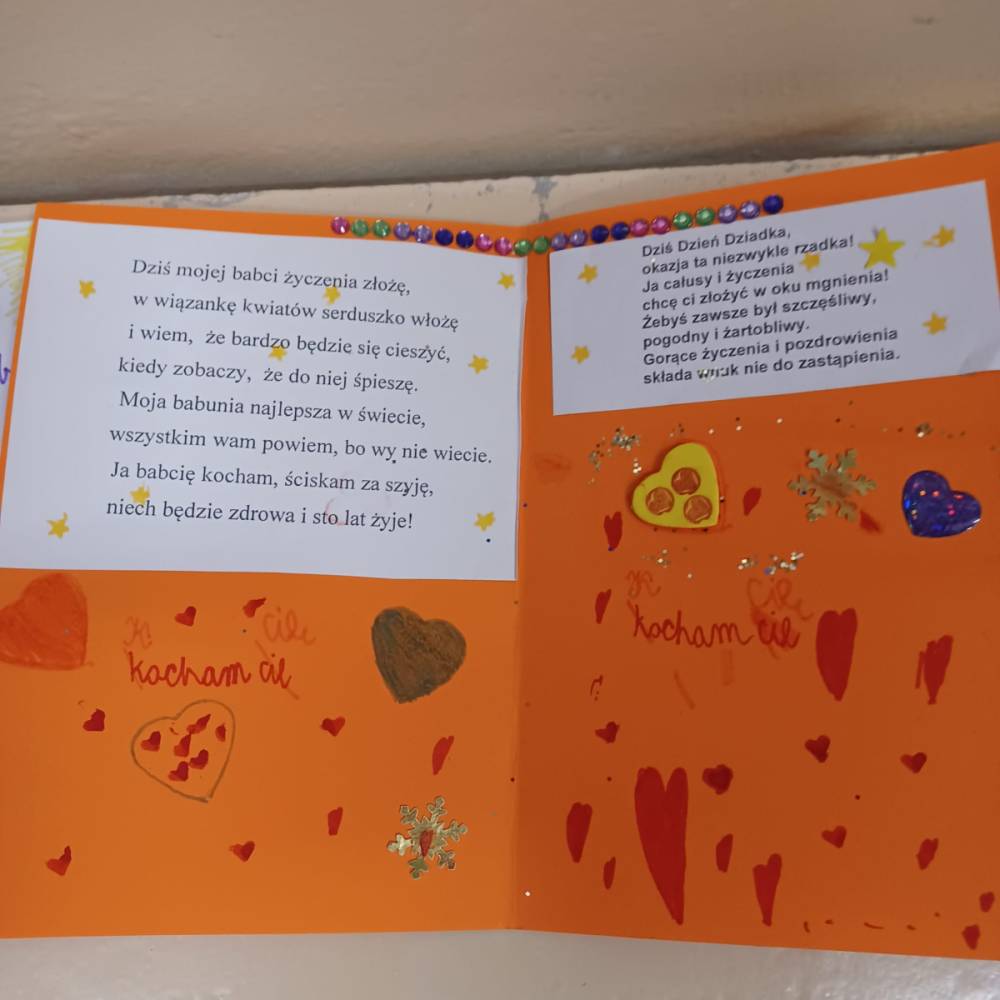 Dziś mojej babci życzenia złożę,
w wiązankę kwiatów serduszko włożę
i wiem, że bardzo będzie się cieszyć,
kiedy zobaczy, że do niej śpieszę.
Moja babunia najlepsza w świecie,
wszystkim wam powiem, bo wy nie wiecie.
Ja babcię kocham, ściskam za szyję,
niech będzie zdrowa i sto lat żyje!
kocham cię
Dziś Dzień Dziadka,
okazja ta niezwykle rzadka!
Ja całusy i życzenia
chcę ci złożyć w oku mgnienia!
Żebyś zawsze był szczęśliwy,
pogodny i żartobliwy.
Gorące życzenia i pozdrowienia
składa wnuk nie do zastąpienia.
kocham cię